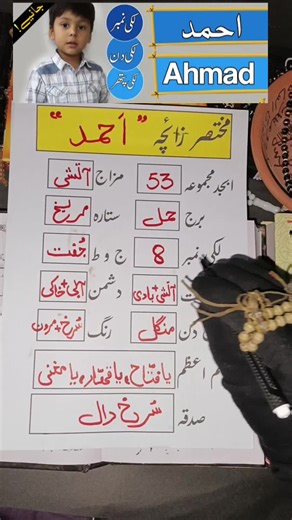 جانیے!
لکی نمبر
لکی دن
لکی پتھر
احمد
Ahmad
مختصر زائچہ "اَحمد"
ابجد مجموعہ 53 مزاج آتشی
برج حمل ستارہ مریخ
لکی نمبر 8 ج و ط جُفت
آتشی+بادی دشمن آبی+خاکی
دن منگل رنگ سُرخ+مرون
اعظم یا فتاح، یا قھار، یا مغنی
صدقہ سُرخ دال